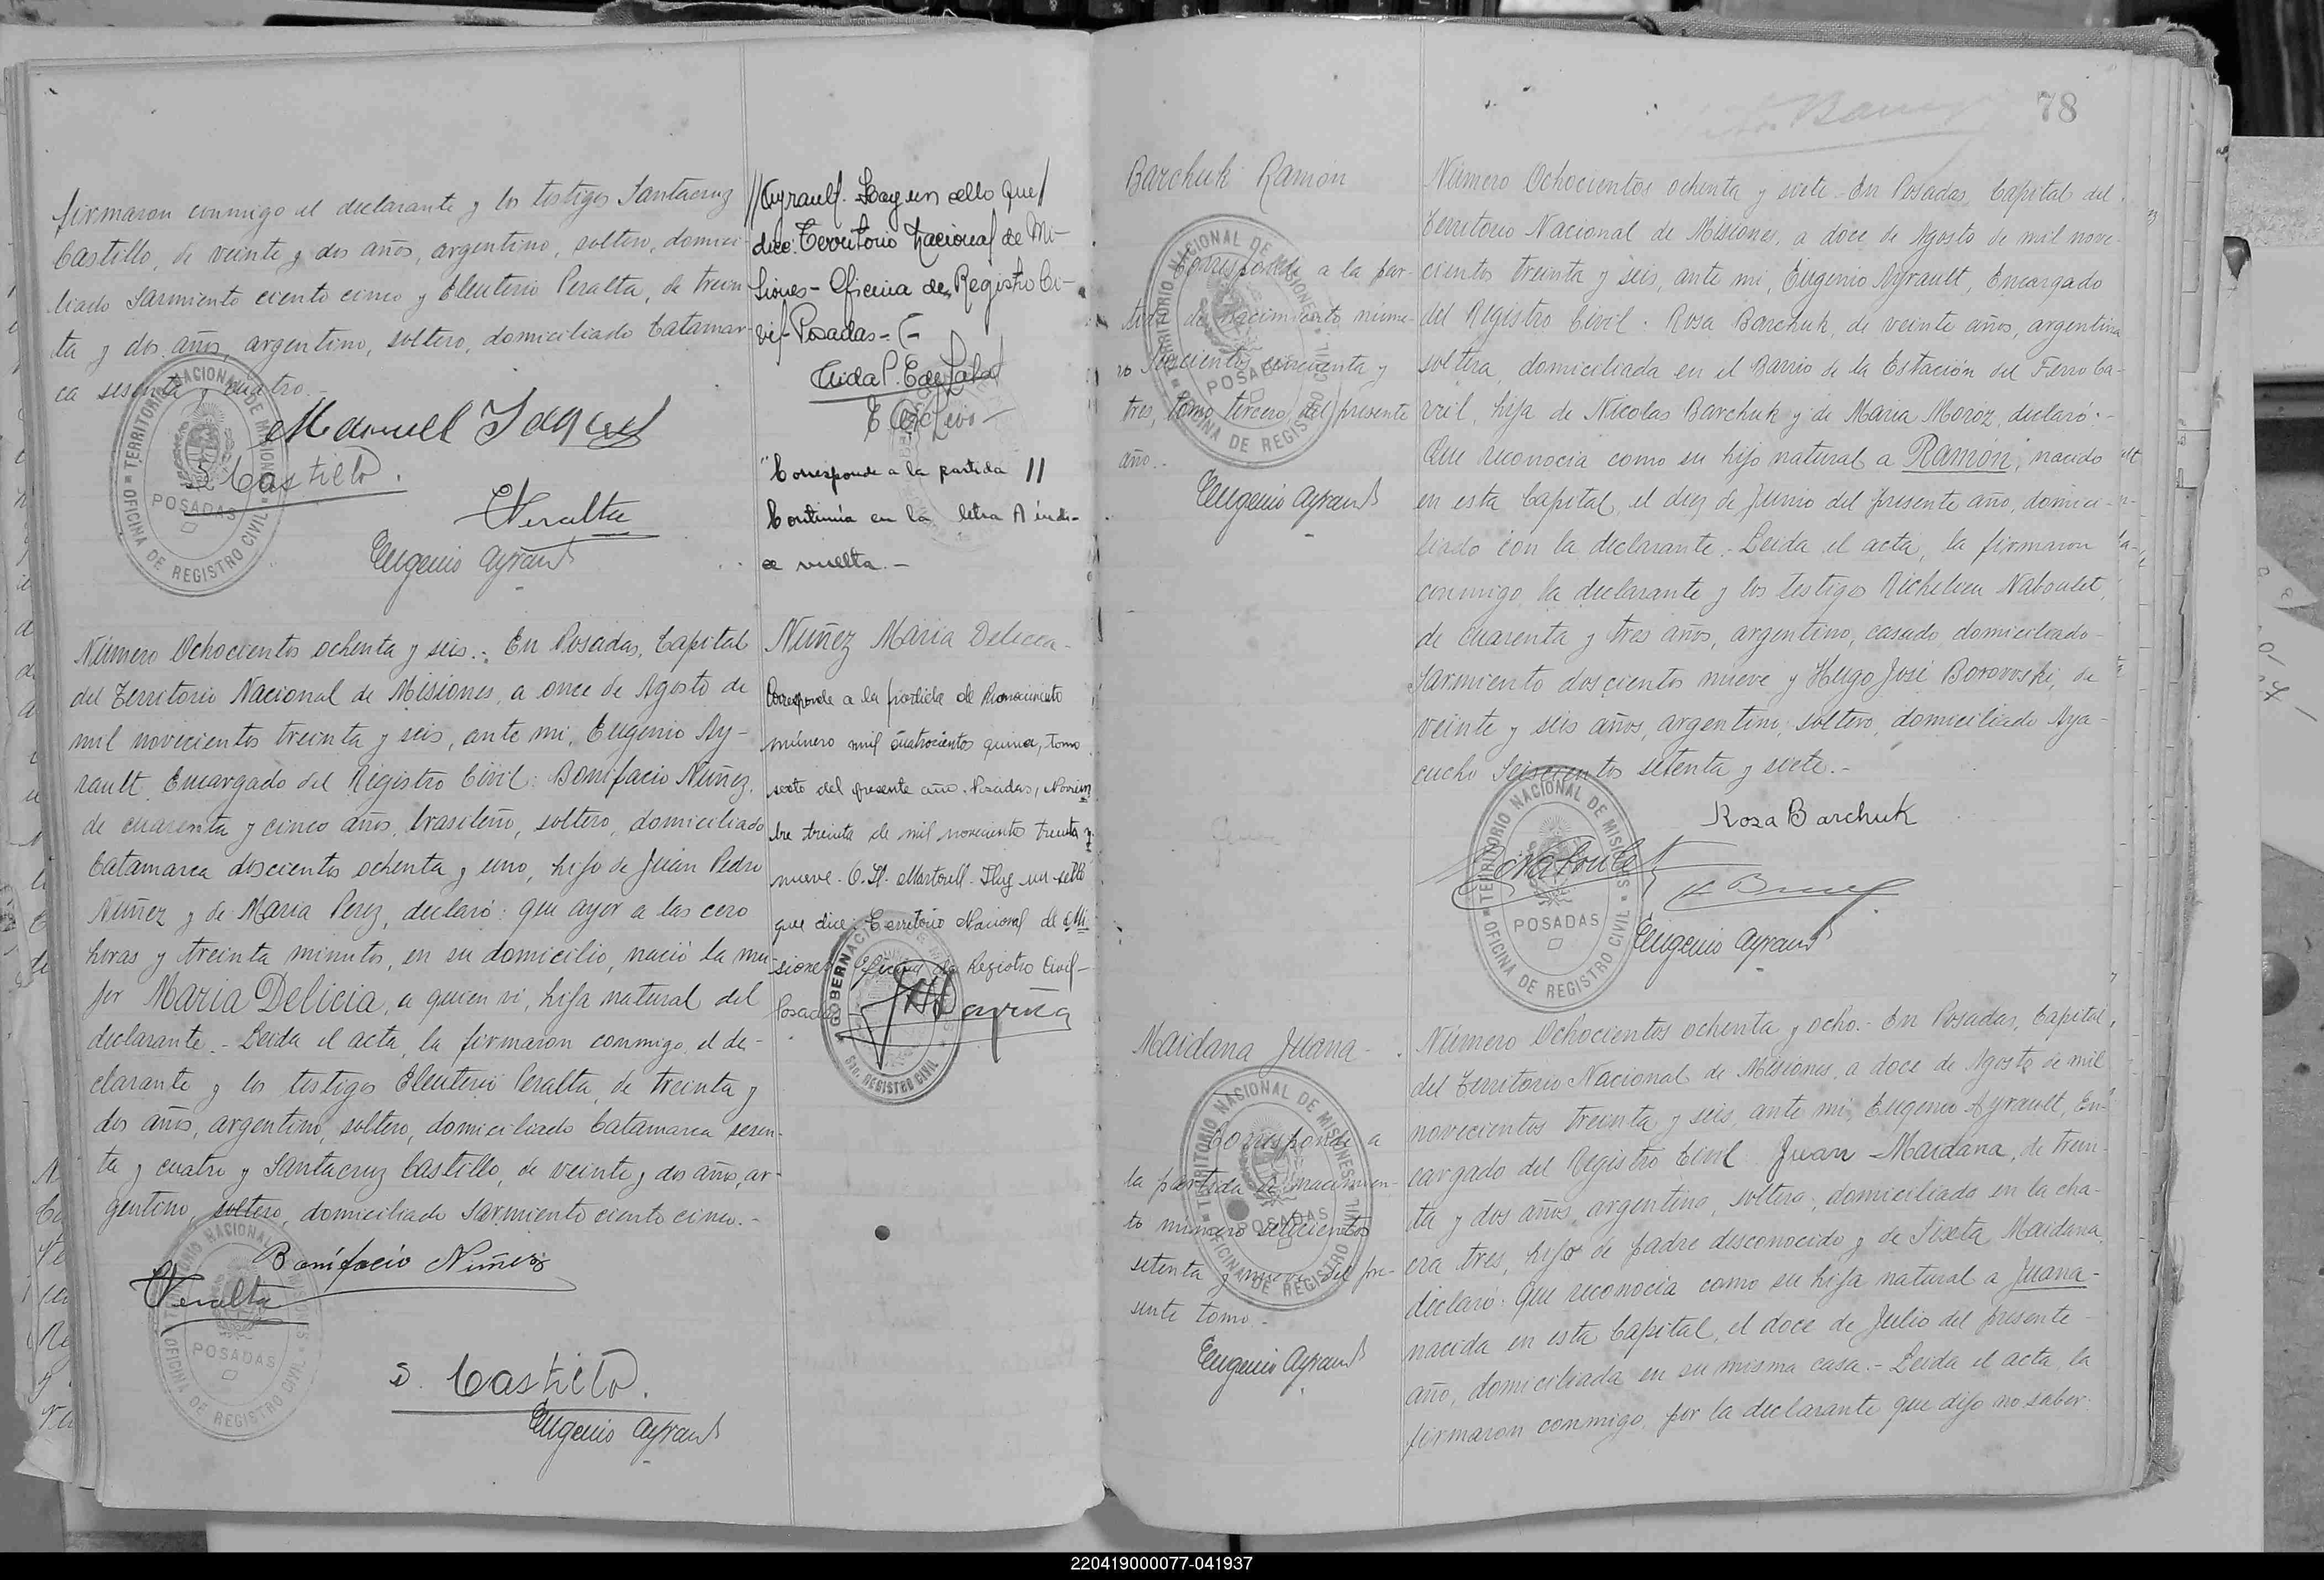 firmaron conmigo el declarante y los testigos Santacruz
Castillo, de veinte y dos años, argentino, soltero, domici-
liado Sarmiento ciento cinco y Eleuterio Peralta, de trein
ta y dos años, argentino, soltero, domiciliado Catamar-
ca sesenta y cuatro.-
Manuel
S. Castillo.
Peralta
Eugenio Ayrault
//Ayrault. Hay un sello que/
dice: Territorio Nacional de Mi-
siones - Oficina de Registro Ci-
vil - Posadas -
"Corresponde a la partida //
Continúa en la letra A índi-
ce vuelta.-
Número Ochocientos ochenta y seis.- En Posadas, Capital
del Territorio Nacional de Misiones, a once de Agosto de
mil novecientos treinta y seis, ante mi, Eugenio Ay-
rault, Encargado del Registro Civil: Bonifacio Nuñez,
de cuarenta y cinco años, brasileño, soltero, domiciliado
Catamarca doscientos ochenta y uno, hijo de Juan Pedro
Nuñez y de Maria Perez, declaró: que ayer a las cero
horas y treinta minutos, en su domicilio, nació la mu-
jer Maria Delicia, a quien vi, hija natural del
declarante.- Leida el acta, la firmaron conmigo, el de-
clarante y los testigos Eleuterio Peralta, de treinta y
dos años, argentino, soltero, domiciliado Catamarca sesen-
ta y cuatro y Santacruz Castillo, de veinte y dos años, ar-
gentino, soltero, domiciliado Sarmiento ciento cinco.-
Bonifacio Nuñez
Peralta
S. Castillo.
Eugenio Ayrault
Nuñez Maria Delicia-
Corresponde a la partida de Reconocimiento
número mil cuatrocientos quince, tomo
sexto del presente año. Posadas, Noviem
bre treinta de mil novecientos treinta y
nueve. O. H. Martorell - Hay un sello
que dice: Territorio Nacional de Mi
siones Oficina de Registro Civil-
Posadas
GOBERNACION
Sec. REGISTRO CIVIL
78
Barchuk Ramón
Corresponde a la par-
tida de nacimiento núme-
ro seiscientos cincuenta y
tres, tomo tercero del presente
año.-
Eugenio Ayrault
Número Ochocientos ochenta y siete.- En Posadas, Capital del
Territorio Nacional de Misiones, a doce de Agosto de mil nove-
cientos treinta y seis, ante mi, Eugenio Ayrault, Encargado
del Registro Civil: Rosa Barchuk, de veinte años, argentina
soltera, domiciliada en el Barrio de la Estación del Ferro Ca-
rril, hija de Nicolas Barchuk y de Maria Moróz, declaró:-
Que reconocia como su hijo natural a Ramón, nacido
en esta Capital, el diez de Junio del presente año, domici-
liado con la declarante.- Leida el acta, la firmaron
conmigo, la declarante y los testigos Richelieu Naboulet,
de cuarenta y tres años, argentino, casado, domiciliado-
Sarmiento doscientos nueve y Hugo José Borovoski, de
veinte y seis años, argentino, soltero, domiciliado Aya-
cucho Seiscientos setenta y siete.-
Rosa Barchuk
R Naboulet
Eugenio Ayrault
TERRITORIO NACIONAL DE MISIONES
POSADAS
OFICINA DE REGISTRO CIVIL
Maidana Juana-
Corresponde a
la partida de nacimien-
to número setecientos
setenta y nueve del pre-
sente tomo.-
Eugenio Ayrault
Número Ochocientos ochenta y ocho.- En Posadas, Capital,
del Territorio Nacional de Misiones, a doce de Agosto de mil
novecientos treinta y seis, ante mi, Eugenio Ayrault, En-
cargado del Registro Civil Juan Maidana, de trein-
ta y dos años, argentino, soltero, domiciliado en la cha-
cra tres, hijo de padre desconocido y de Sixta Maidana,
declaró: Que reconocia como su hija natural a Juana-
nacida en esta Capital, el doce de Julio del presente
año, domiciliada en su misma casa.- Leida el acta, la
firmaron conmigo, por la declarante que dijo no saber:
220419000077-041937